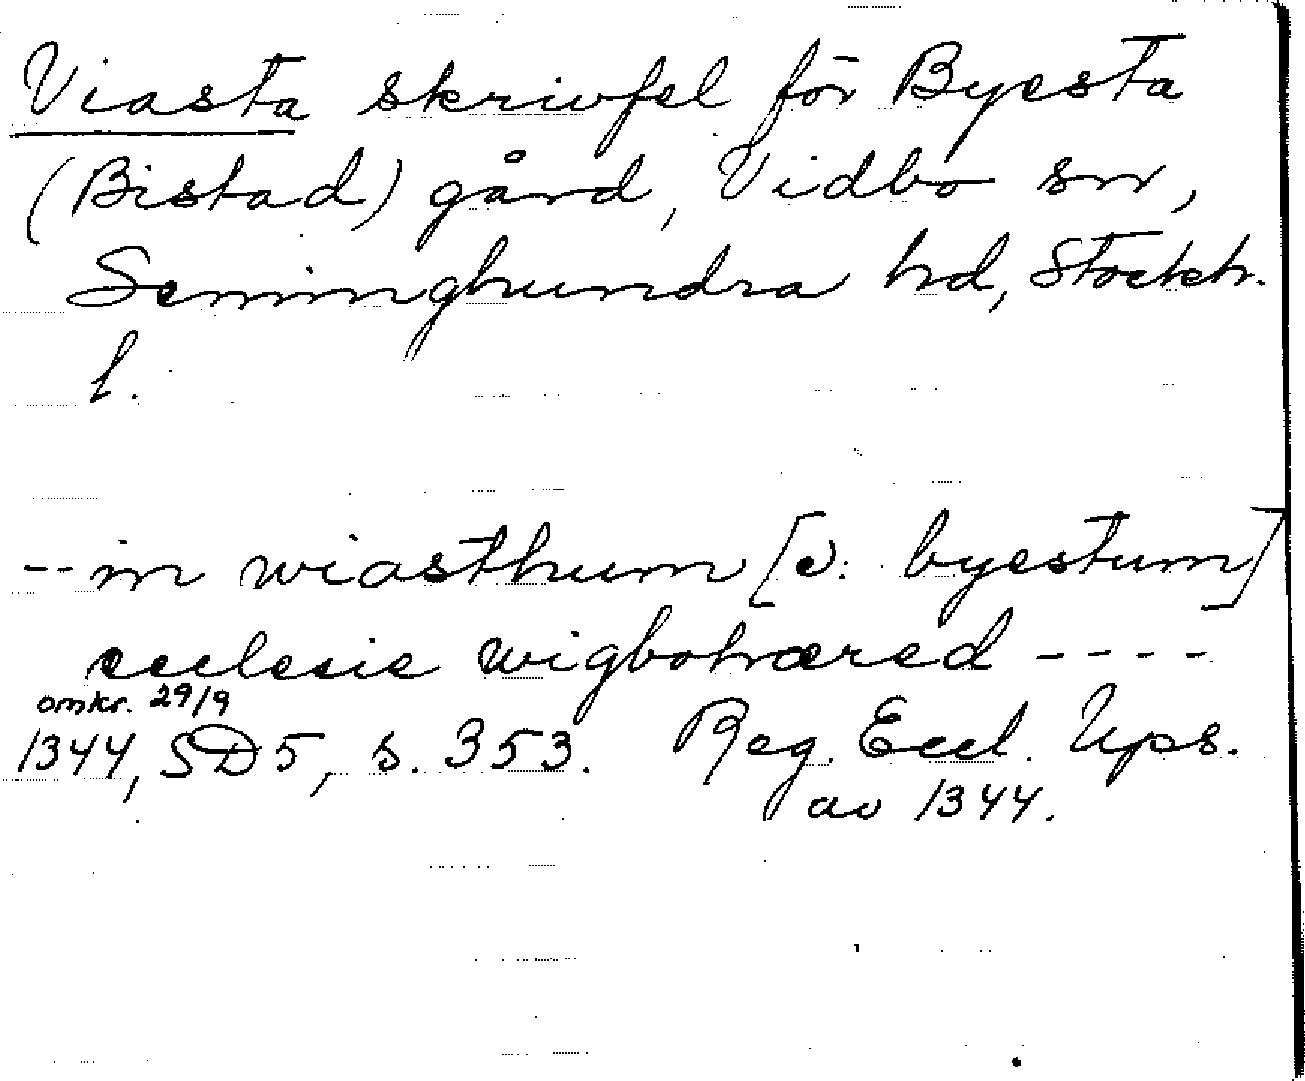 Viasta skrivfel för Byesta
(Bistad) gård, Vidbo sn,
Seminghundra hd, Stockh.
l.
-- in wiasthum [ɔ: byestum]
ecclesie wigbohæred ----
omkr. 29/9
1344, SD5, s. 353. Reg. Eccl. Ups.
av 1344.